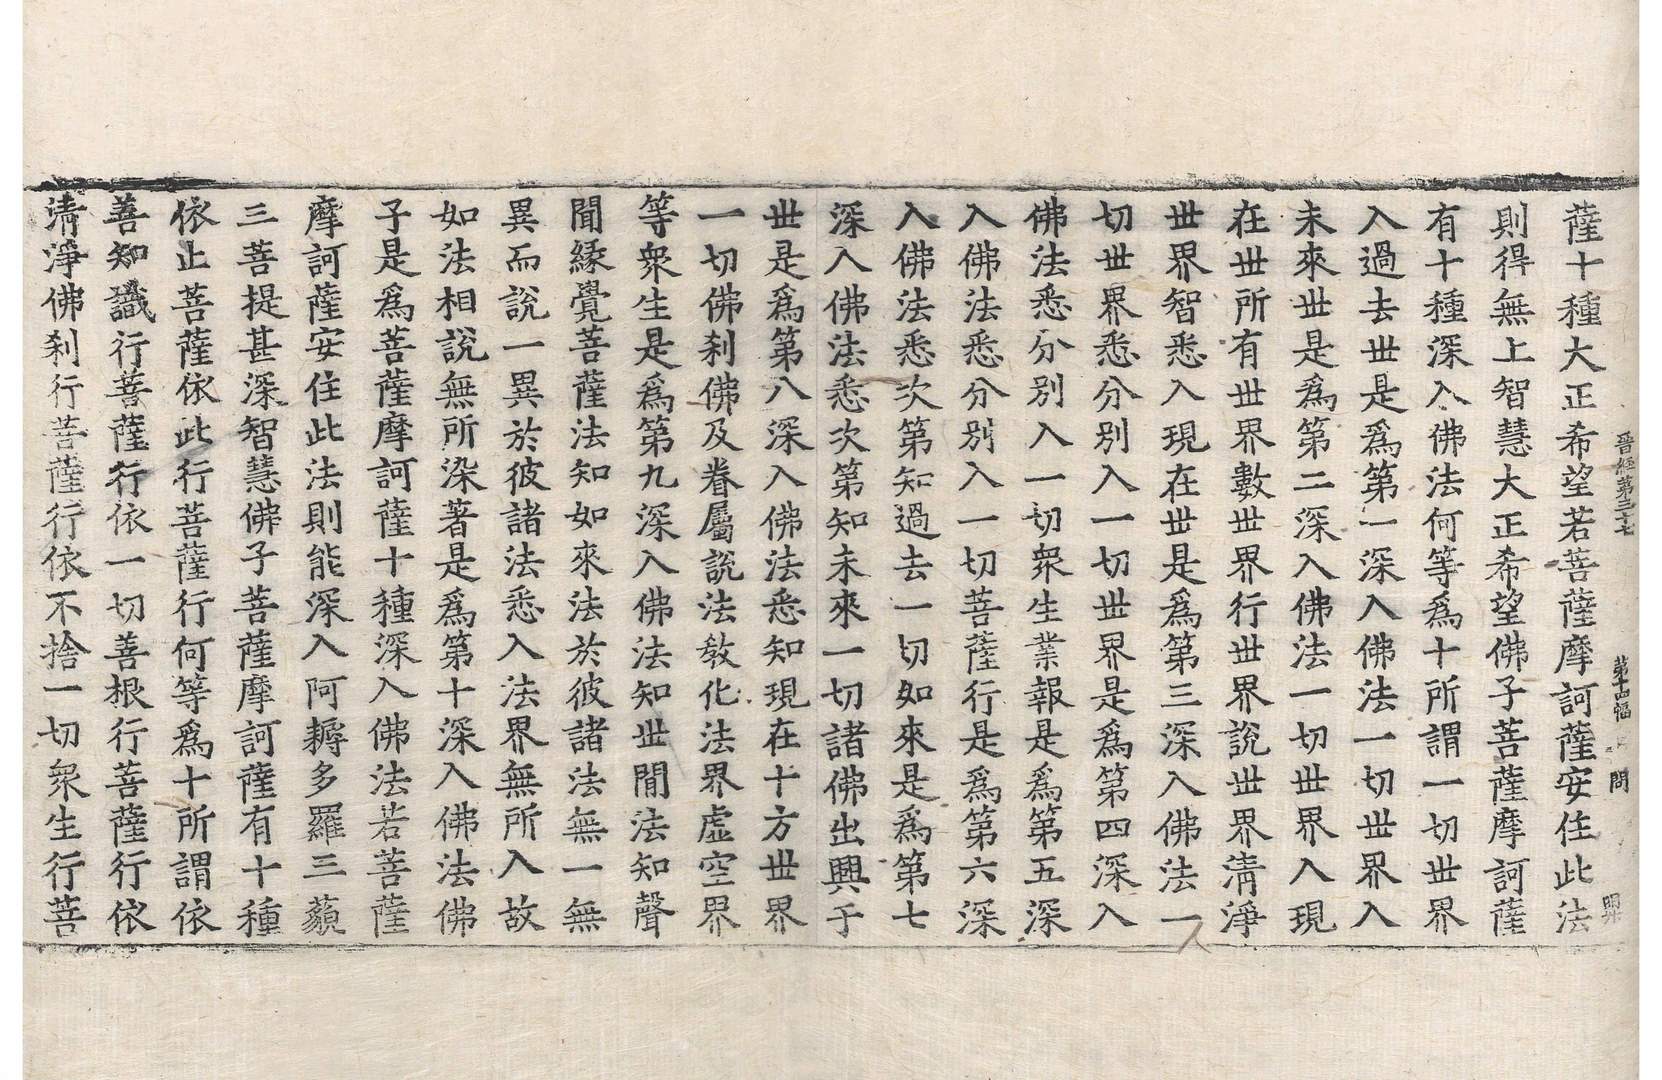 晉經第三十七 第十四幅 問
薩十種大正希望若菩薩摩訶薩安住此法
則得無上智慧大正希望佛子菩薩摩訶薩
有十種深入佛法何等爲十所謂一切世界
入過去世是爲第一深入佛法一切世界入
未來世是爲第二深入佛法一切世界入現
在世所有世界數世界行世界說世界淸淨
世界智悉入現在世是爲第三深入佛法一
切世界悉分別入一切世界是爲第四深入
佛法悉分別入一切衆生業報是爲第五深
入佛法悉分別入一切菩薩行是爲第六深
入佛法悉次第知過去一切如來是爲第七
深入佛法悉次第知未來一切諸佛出興于
世是爲第八深入佛法悉知現在十方世界
一切佛刹佛及眷屬說法敎化法界虛空界
等衆生是爲第九深入佛法知世間法知聲
聞緣覺菩薩法知如來法於彼諸法無一無
異而說一異於彼諸法悉入法界無所入故
如法相說無所染著是爲第十深入佛法佛
子是爲菩薩摩訶薩十種深入佛法若菩薩
摩訶薩安住此法則能深入阿耨多羅三藐
三菩提甚深智慧佛子菩薩摩訶薩有十種
依止菩薩依此行菩薩行何等爲十所謂依
善知識行菩薩行依一切善根行菩薩行依
淸淨佛刹行菩薩行依不捨一切衆生行菩